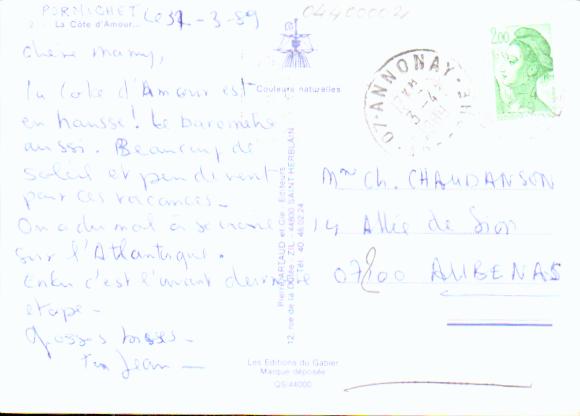 PORNICHET
La Côte d'Amour...
Le 31-3-89
044000021
Chère Mamy,
la Côte d'Amour est
en hausse! Le baromètre
aussi. Beaucoup de
soleil et peu de vent
pour ces vacances.
On a du mal à se croire
sur l'Atlantique.
Enfin c'est l'avant dernière
étape.
Grosses bises.
ton Jean
Couleurs naturelles
Pierre ARTAUD et Cie. Editeurs
12, rue de la Dutée - Z.I.L. 44800 SAINT HERBLAIN
Tél. 40.46.02.24
Les Editions du Gabier
Marque déposée
QS/44000
07 ANNONAY
3-4
2,00
Mme Ch. CHAUDANSON
14 Allée de
07200 AUBENAS